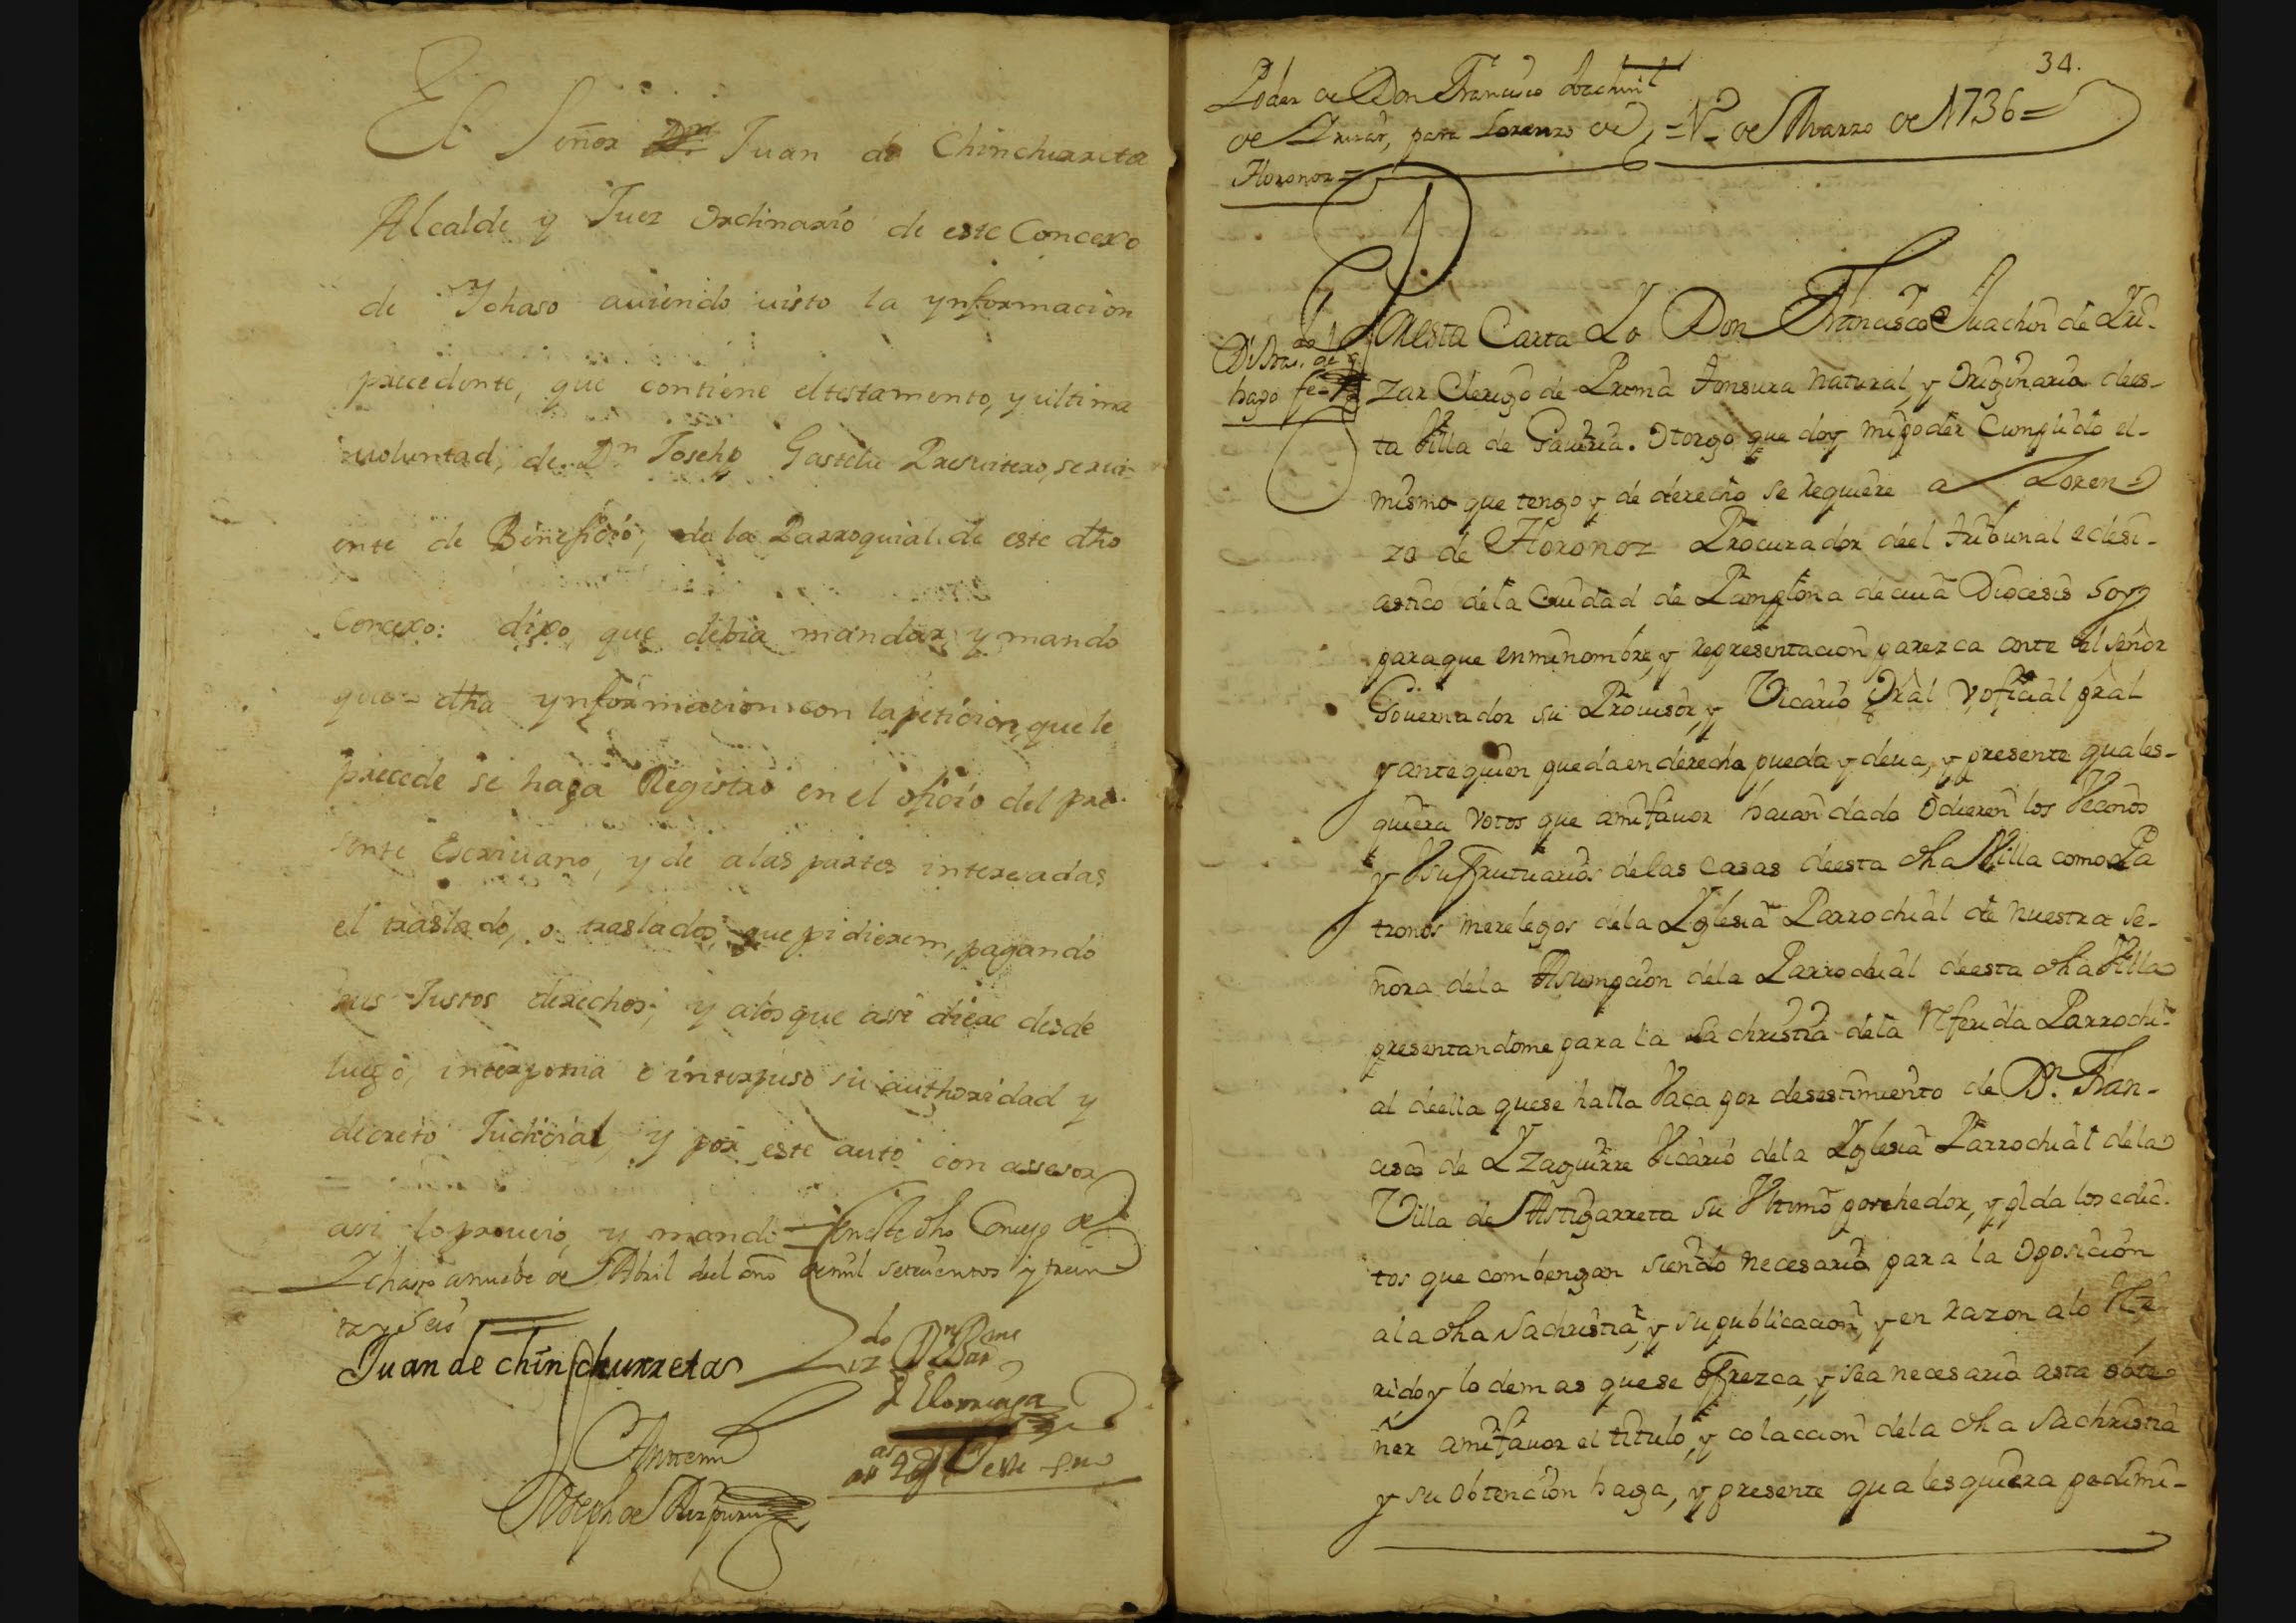 El Señor Juan de Chinchurreta
Alcalde y Juez ordinario de este Concexo
de Ichaso auiendo uisto la ynformacion
precedente, que contiene el testamento, y ultima
uoluntad, de Dn Joseph Gastelu Presuitero, serui-
ente de Beneficio, de la Parroquial de este dho
Concexo: dixo, que debia mandar y mando
que dha ynformacion con la peticion, que le
precede se haga Registro en el oficio del pre-
sente Escriuano, y de a las partes interesadas
el traslado, o traslados que pidieren, pagando
sus Justos derechos; y a los que asi diere desde
luego, interponia e interpuso su authoridad y
decreto Judicial, y por este auto con assesor
asi lo proueio, y mando = en este dho Concejo de
Ichaso a nuebe de Abril del año de mil setecientos y trein
ta y seis
Juan de chinchurreta
Lizdo Dn
Elorriaga
Antemi
Joseph de Aizpuru
34.
Poder de Don Francisco
de para Lorenzo de = de Marzo de 1736 =
Horonoz =
hago fe
Por esta Carta Yo Don Francisco Juachin de Yri-
zar Clerigo de Prima tonsura natural, y Originario de es-
ta Villa de Gauiria. Otorgo que doy mi poder Cumplido el
mismo que tengo y de derecho se requiere a Loren-
zo de Horonoz Procurador de el tribunal eclesi-
astico de la Ciudad de Pamplona de cuia Diocesis soy
para que en mi nombre, y representacion parezca ante el señor
Gouernador su Prouisor, y Vicario Gral y oficial pral
y ante quien pueda en derecho pueda y deua, y presente quales-
quiera votos que a mi fauor haian dado o dieren los Vecinos
y Vsufrutuarios de las casas de esta dha Villa como Pa
tronos merelegos de la Yglesia Parrochial de nuestra se-
ñora de la Asumpcion de la Parrochial de esta dha Villa
presentandome para la sachristia de la referida Parrochi-
al de ella que se halla Vaca por desestimiento de Dn. Fran-
cisco de Yzaguirre Vicario de la Yglesia Parrochial de la
Villa de Astigarreta su Vltimo porehedor, y pida los edic-
tos que combengan siendo necesario para la Oposicion
a la dha sachristia, y su publicacion, y en razon a lo refe
rido y lo demas que se ofrezca, y sea necesario asta obte-
ner a mi fauor el titulo, y colaccion de la dha sachristia
y su obtencion haga, y presente qualesquiera pedimi-